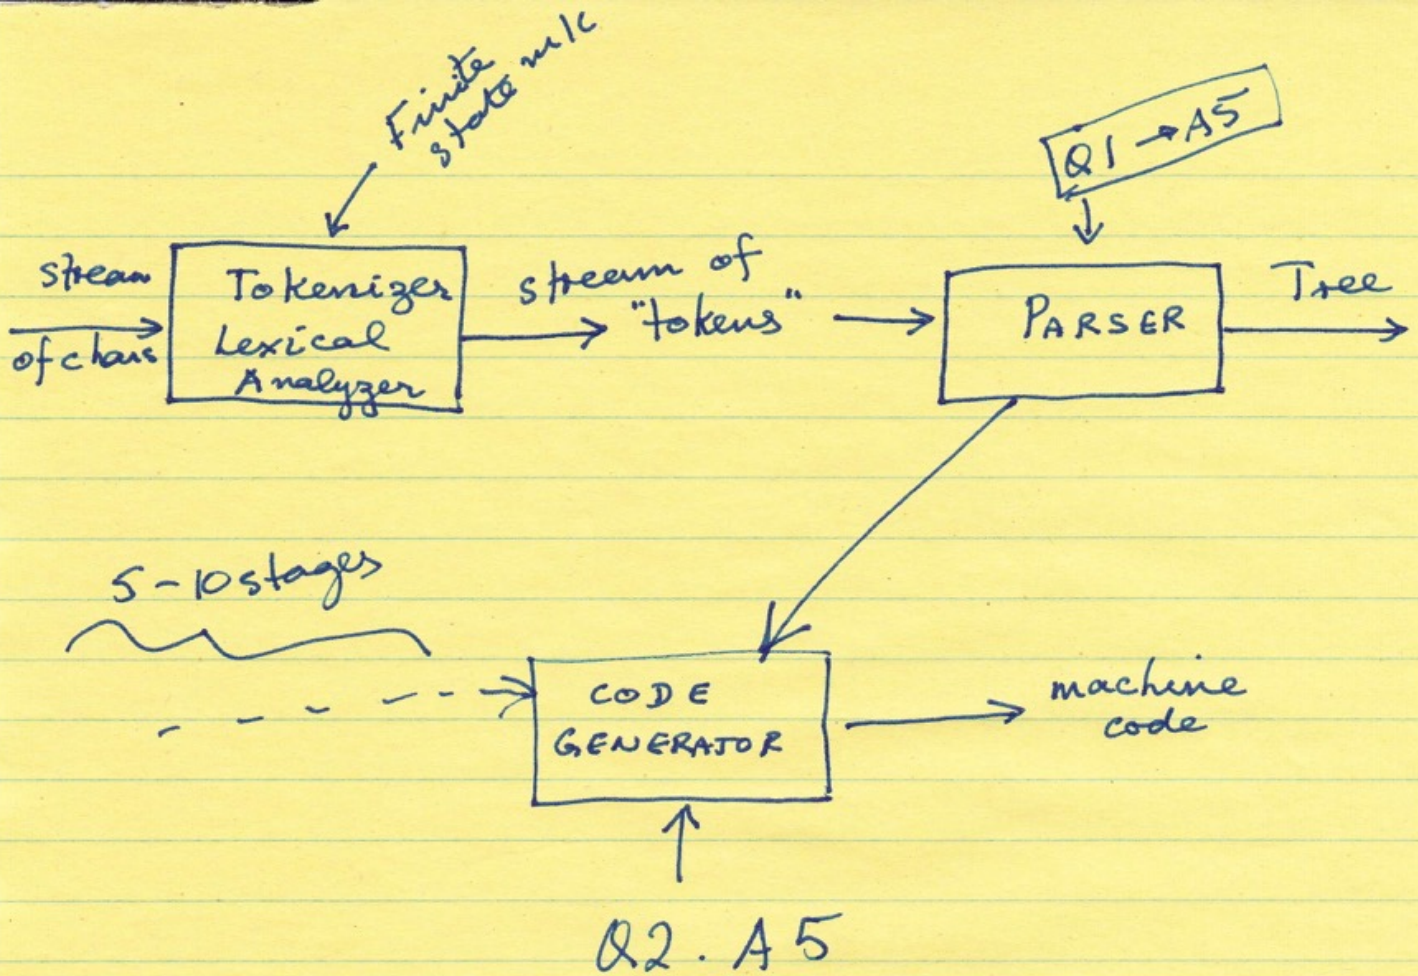 Finite
state m/c
Q1 → A5
stream
of chars
Tokenizer
Lexical
Analyzer
stream of
"tokens"
PARSER
Tree
5-10 stages
CODE
GENERATOR
machine
code
Q2. A5